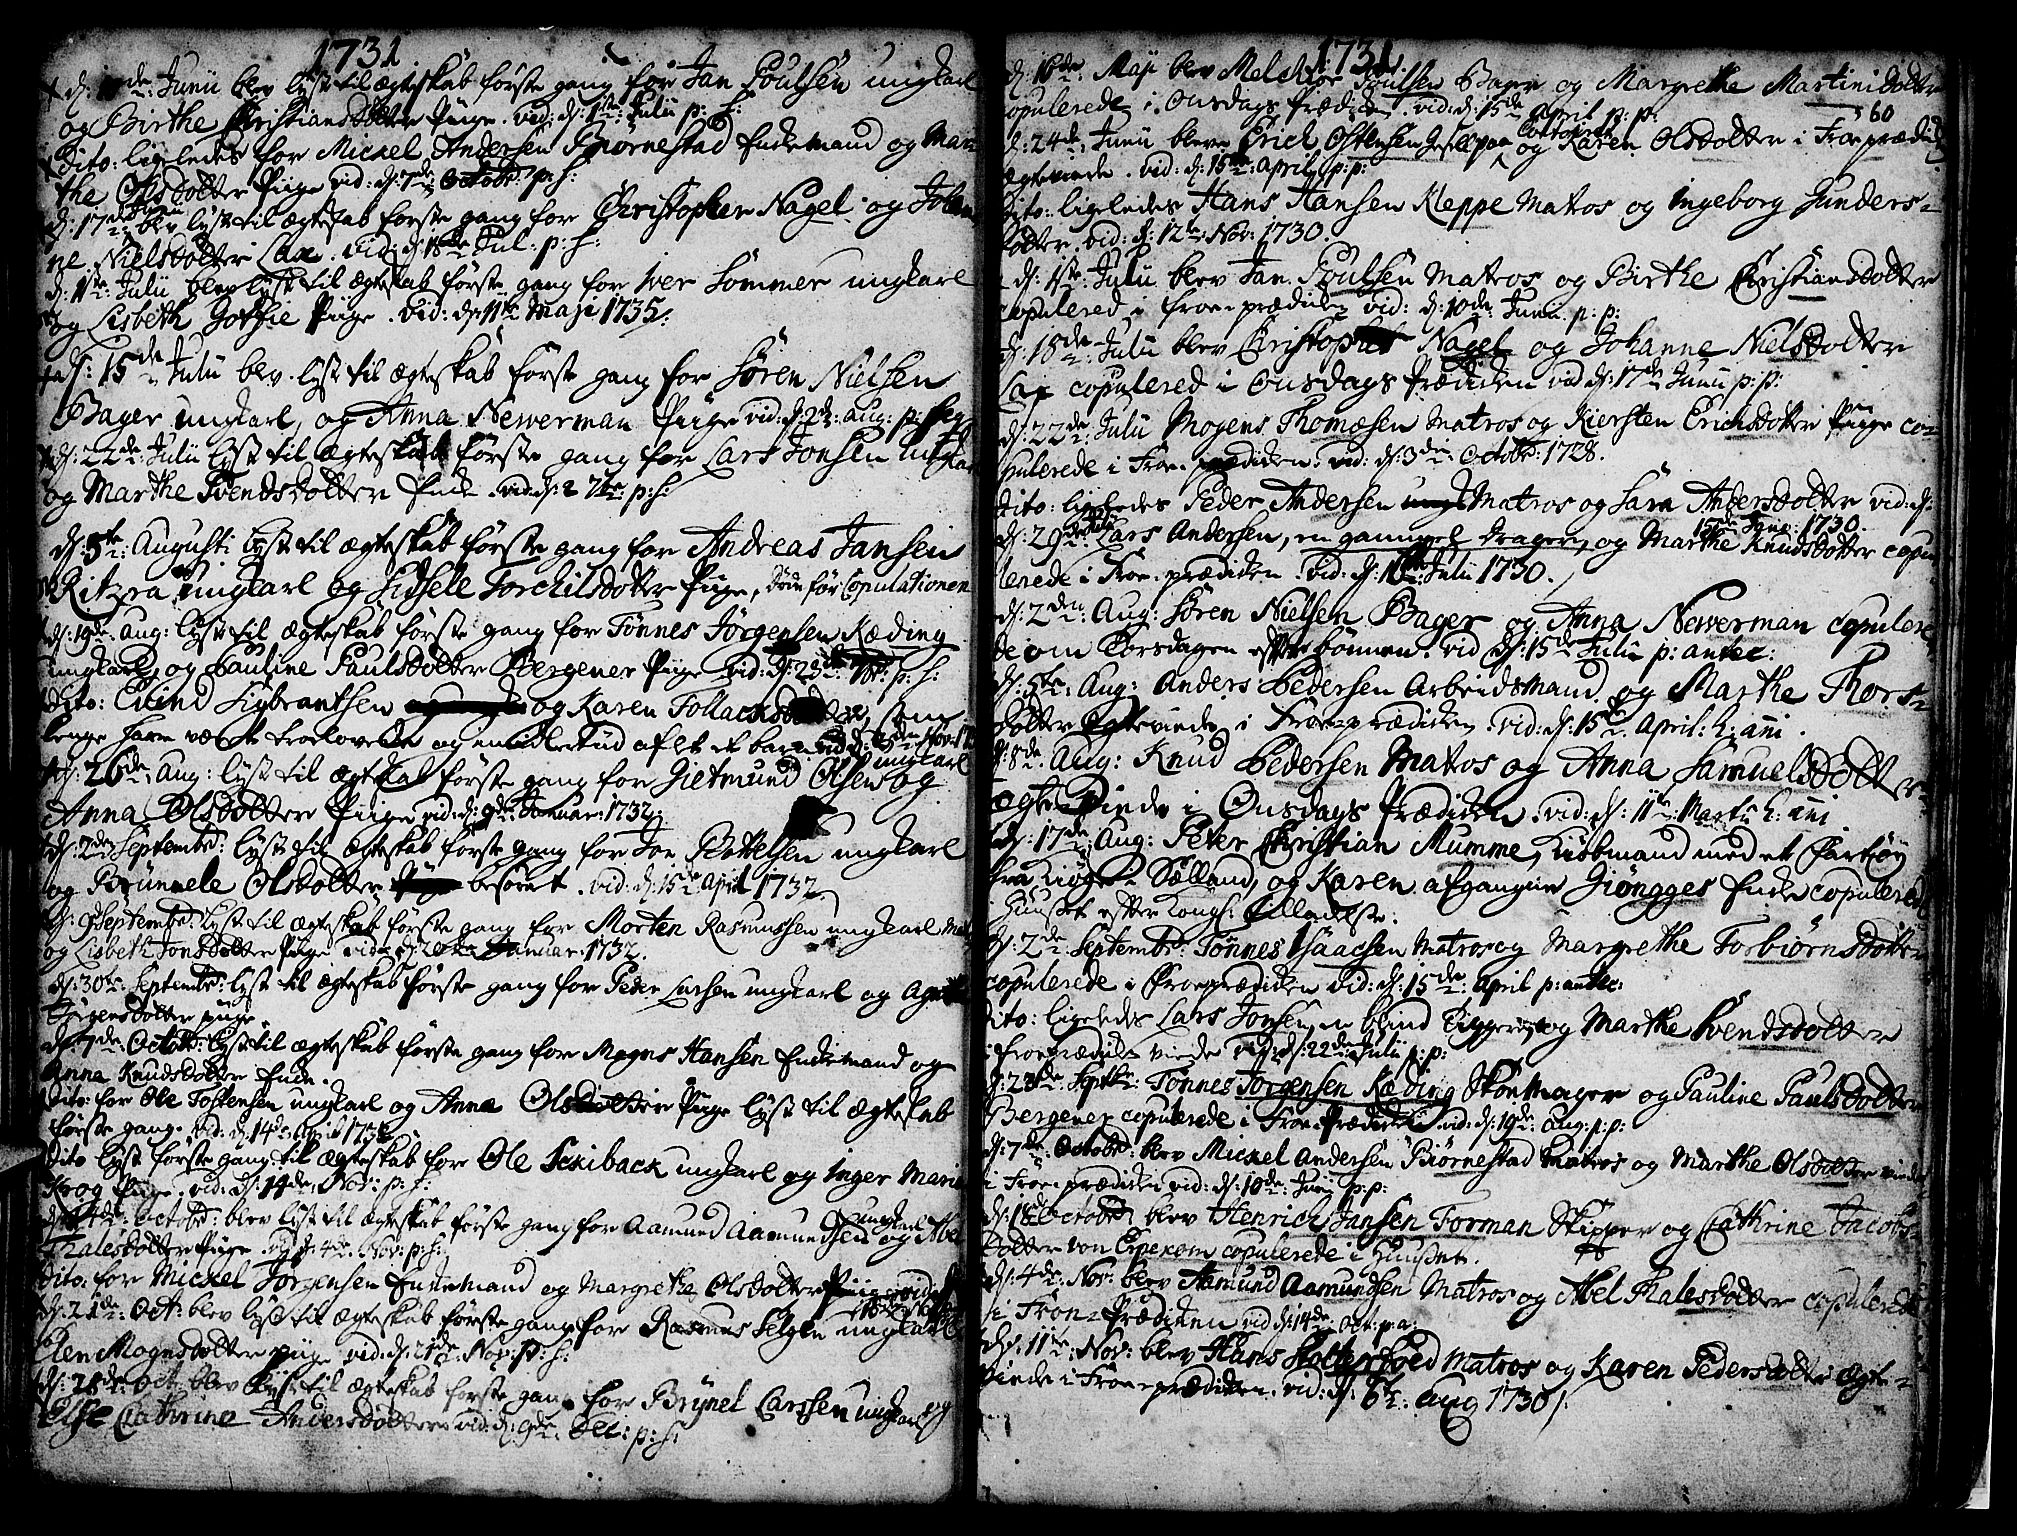 1731
d: 10de Junii blev lyst til ægteskab første gang for Jan Poulsen ungkarl
og Birthe Christiansdotter Piige. vid: d: 1ste Julii p: h:
Dito: ligeledes for Mickel Andersen Biørnestad Enckemand og Mar-
the Olsdotter Piige vid: d: 7de Octobr: p: h:
d: 17de Junii blev lyst til ægteskab første gang for Christopher Nagel og Johan-
ne Nielsdotter Lax. vid: d: 18de Jul: p: h:
d: Julii blev lyst til ægteskab første gang for Iver Sommer ungkarl
og Lisbeth Piige. vid: d: 11te Maji 1735.
d: 15de Julii blev lyst til ægteskab første gang for Søren Nielsen
Bager ungkarl, og Anna Newerman Piige vid: d: 2de aug: p:
d: 22de Julii lyst til ægteskab første gang for Lars Jonsen ungkarl
og Marthe Svendsdotter Encke. vid: d: 2 7br: p: h:
d: 5te Augusti lyst til ægteskab første gang for Andreas Jansen
Ritzra ungkarl og Sidsele Torchilsdotter Piige, døde før Copulationen
d: 19de Aug: lyst til ægteskab første gang for Tønnes Jørgensen Kæding
ungkarl og Pauline Paulsdotter Bergener Piige vid: d: 23de 7br: p: h:
Dito: Eivind Sigbrantsen og Karen Tollacksdotter, som
lenge have været troelovede og imidlertiid aflet et barn. vid: d: Nov: 17
d: 26de Aug: lyst til ægteskab første gang for Gietmund Olsen ungkarl og
Anna Olsdotter Piige vid: d: 9de Januar: 1732.
d: 2de Septembr: lyst til ægteskab første gang for Jon Bottelsen ungkarl
og Brünnele Olsdotter besovet. vid: d: 15de April 1732.
d: 9 Septembr: lyst til ægteskab første gang for Morten Rasmussen ungkarl
og Lisbeth Jonsdotter Piige vid: d: 20de Januar 1732.
d: 30te Septembr: lyst til ægteskab første gang for Peder Larsen ungkarl og
Jørgensdotter piige
d: 7de Octobr: lyst til ægteskab første gang for Mogns Hansen Enckemand og
Anna Knudsdotter Encke.
Dito: for Ole Tostensen ungkarl og Anna Olsdotter Piige lyst til ægteskab
første gang. vid: d: 14de April 1732
Dito lyst første gang til ægteskab for Ole Sckiback ungkarl og Inger Marie
Krog Piige. vid: d: 14de Nov: p: h:
d: 14de Octobr: blev lyst til ægteskab første gang for Aamund Aamundsen ungkarl og Abel
Thalesdotter Piige. vid: d: 4de Nov: p: h:
Dito: for Mickel Jørgensen Enckemand og Margrethe Olsdotter Piige vid: d:
d: 21de Oct: blev lyst til ægteskab første gang for Rasmus Selgen ungkarl
Elen Mognsdotter piige vid: d: 21de Nov: p: h:
d: 28de Oct: blev lyst til ægteskab første gang for Brynel Larssen ungkarl og
Else Cathrina Andersdotter vid: d: 9de Dec: p: h:
1731
60
d: 16de Maji blev Melchior Poulsen Bager og Margrethe Martinidotter
copulerede i Onsdags Prædiken. vid: d: 15de April p: p:
d: 24de Junii bleve Erich Ostensen Gesell paa og Karen Olsdotter i Froeprædiken
Ægteviede. vid: d: 15de April p: p:
Dito: ligeledes Hans Hansen Kleppe Matros og Ingeborg Gunders-
dotter. vid: d: 12te Nov: 1730.
d: 1ste Julii blev Jan Poulsen Matros og Birthe Christiansdotter
copulered i froe-prædiken vid: d: 10de Junii p: p:
d: 18de Julii blev Christopher Nagel og Johanne Nielsdotter
Lax copulered i Onsdags Prædiken vid d: 17de Junii p: p:
d: 22de Julii Mogens Thomæsen Matros og Kiersten Erichsdotter Piige co-
pulerede i Froe-prædiken. vid: d: 3de Octobr: 1728.
Dito: ligeledes Peder Andersen Matros og Sara Andersdotter vid: d:
15de 1730.
d: 29de Julii Lars Andersen, en gammel Drager, og Marthe Knudsdotter copu-
lerede i Froe-prædiken. vid: d: 16de Julii 1730.
d: 2den Aug: Søren Nielsen Bager og Anna Newerman copulere-
de om Torsdagen efter bønnen. vid d: 15de Julii p: antec:
d: 5te Aug: Anders Pedersen Arbeidsmand og Marthe Thors-
dotter Ægteviede i Froe-prædiken. vid: d: 15de April: h: ani.
d: 8de Aug: Knud Pedersen Matros og Anna Samuelsdotter
Ægte-Viede i Onsdags Prædiken. vid: d: 11te Martii h: ani
d: 17de Aug: Peter Christian Mumme, Kiøbmand med et Fartøy
fra Kiøge i Sælland, og Karen afgangne Giøngges Encke copulerede
i Huuset efter Kongl: Tilladelse.
d: 2de Septembr: Tønnes Isaachsen Matros og Margrethe Torbiørnsdotter
copulerede i Froeprædiken vid: d: 15de April p: antec:
Dito: ligeledes Lars Jonsen, en blind Tigger, og Marthe Svendsdotter
i froeprædiken viede vid: d: 22de Julii p: p:
d: 23de Septbr: Tønnes Jørgensen Kæding Skoemager og Pauline Paulsdotter
Bergener copulerede i Froe-Prædiken vid: d: 19de Aug: p: p:
d: 7de Octobr: blev Mickel Andersen Biørnestad Matros og Marthe Olsdotter viede
i Froe-prædiken vid: d: 10de Junii p: p:
d: 18de Octobr: blev Henrich Jansen Forman Skipper og Cathrine Jacobs-
dotter von copulerede i Huuset.
d: 4de Nov: blev Aamund Aamundsen Matros og Abel Thalesdotter copulerede
i Froe-Prædiken vid d: 14de Oct: p: a:
d: 11te Nov: blev Hans Matros og Karen Pedersdotter Ægte-
viede i Froe-prædiken. vid: d: 6te Aug 1730.